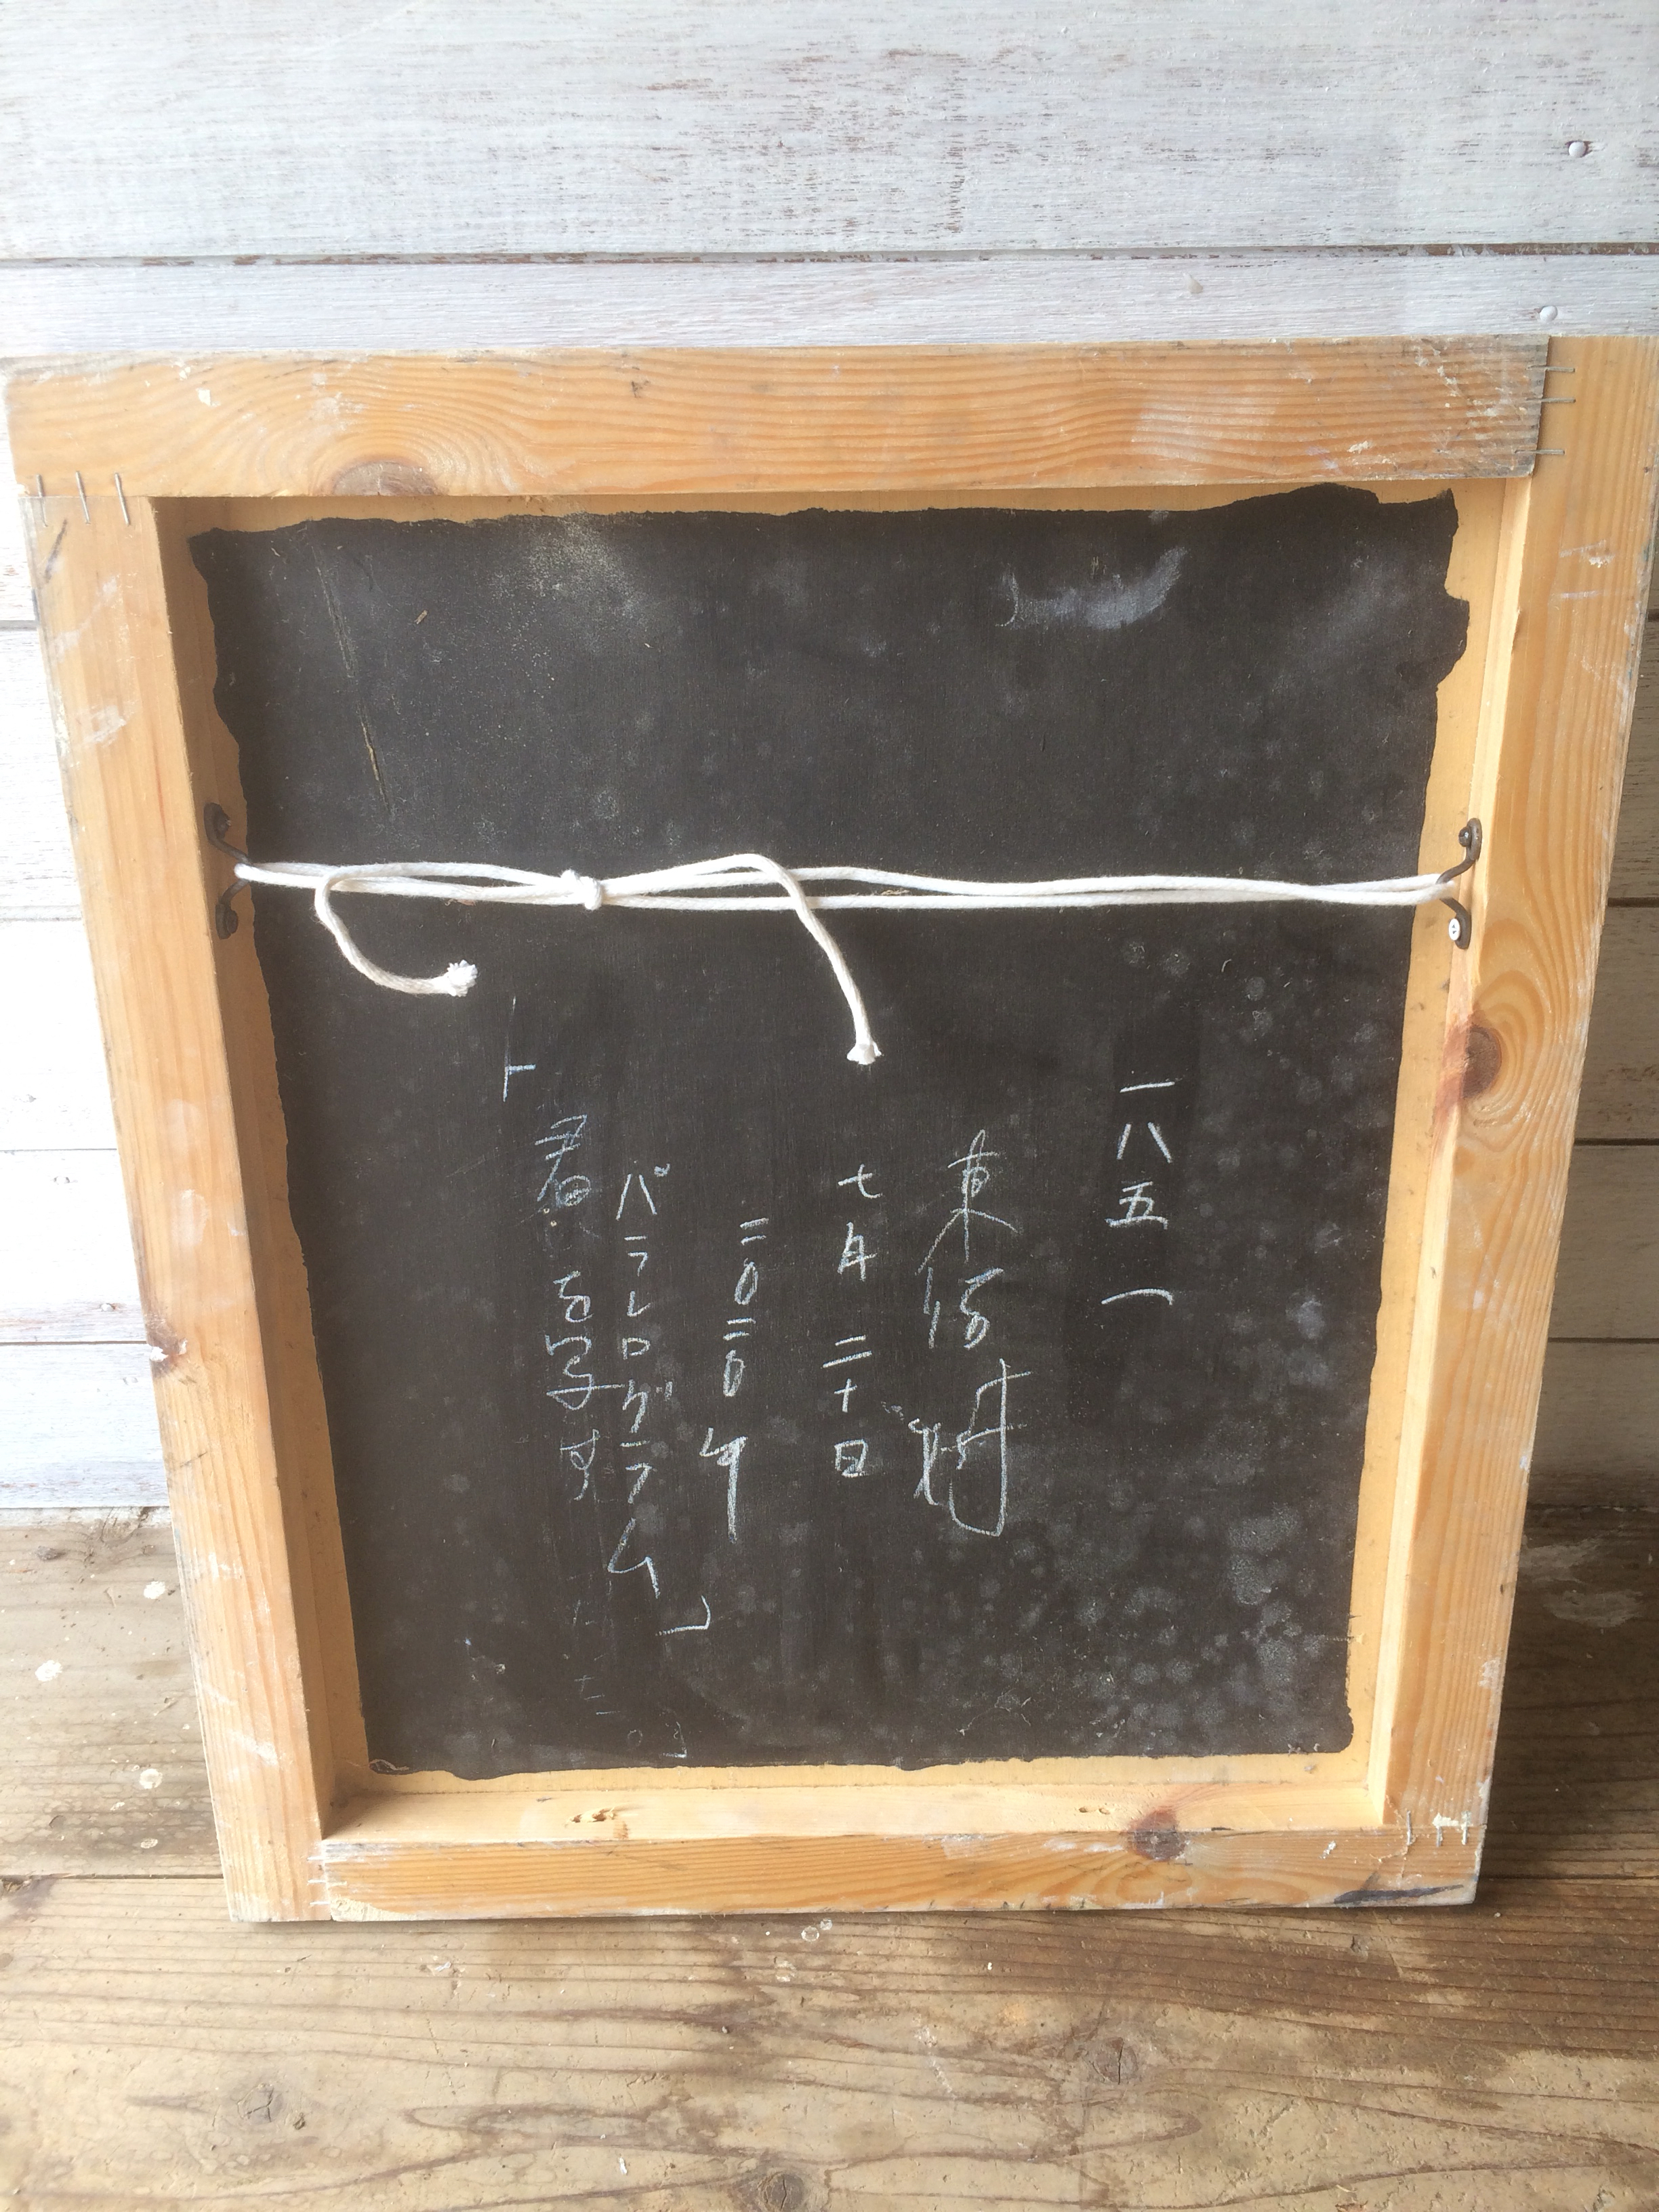 君を写す
パラレログラム」
二〇二〇年
七月二十日
東
一八五一